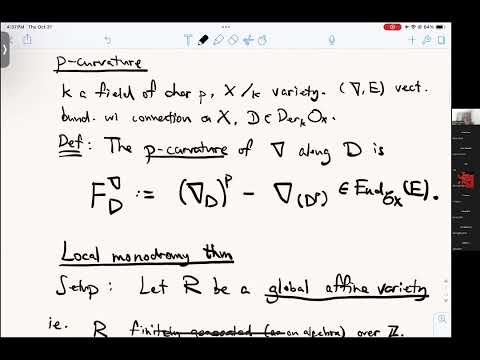 4:37 PM Thu Oct 31
64%
p-curvature
k a field of char p, X/k variety. (∇, E) vect.
bund. w/ connection on X, D ∈ Der_k O_X.
Def: The p-curvature of ∇ along D is
F_D^∇ := (∇_D)^p − ∇_(D^p) ∈ End_{O_X}(E).
Local monodromy thm
Setup: Let R be a global affine variety
ie. R finitely generated (as an algebra) over ℤ.